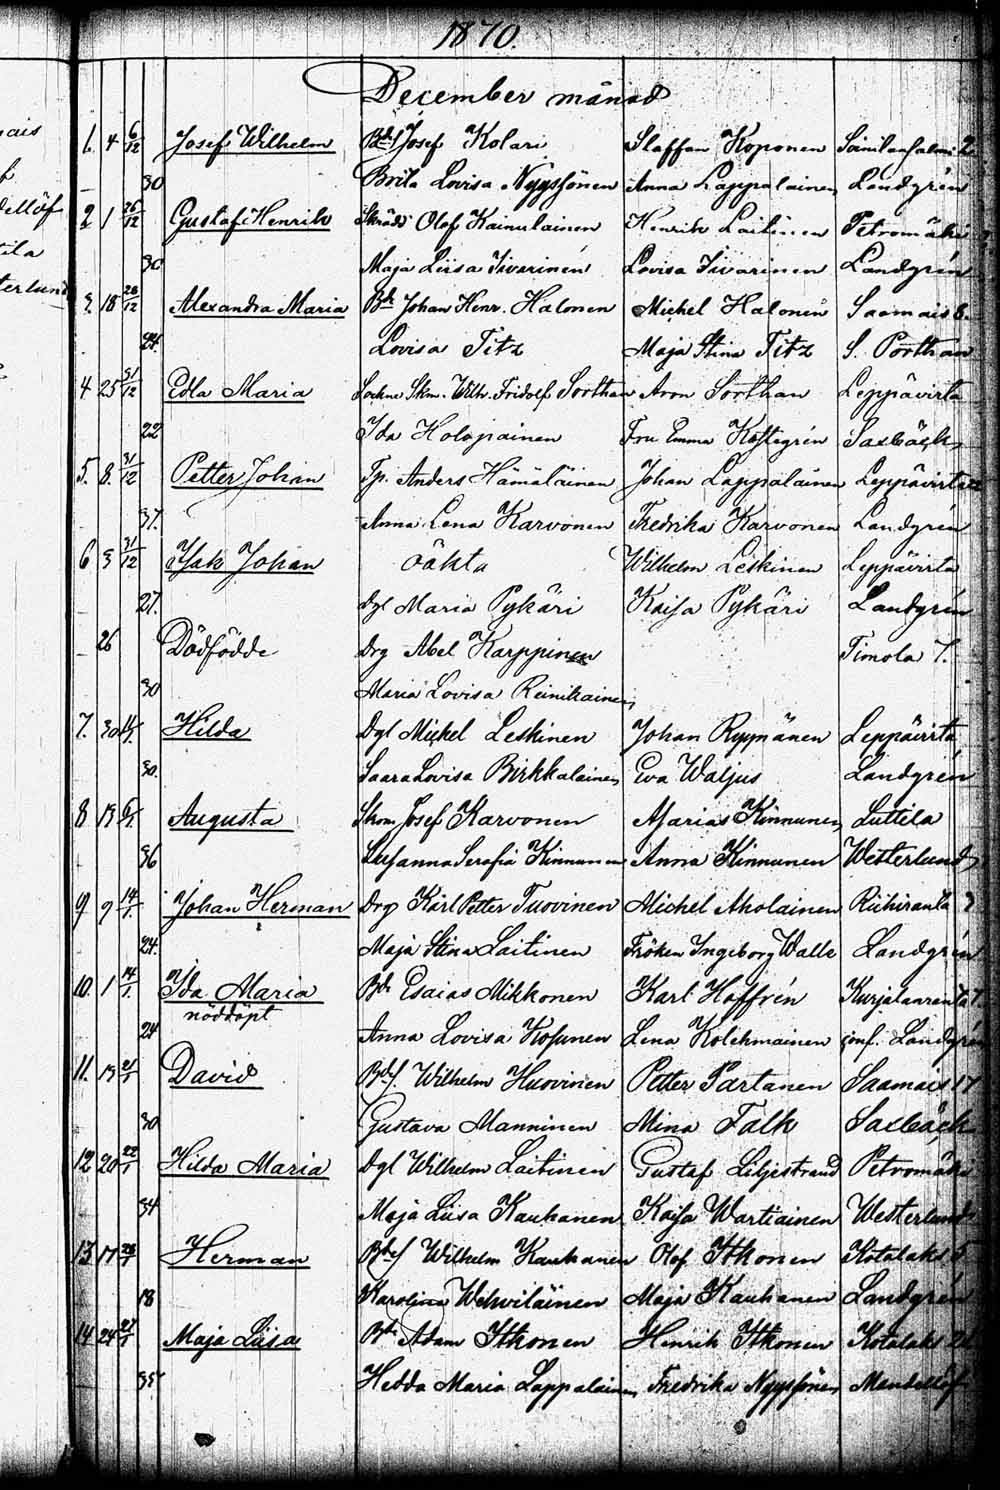 1870.
December månad
1. 4 6/12 Josef Wilhelm Bds Josef Kolari Staffan Koponen
30 Brita Lovisa Nyyssönen Anna Lappalainen Landgrén
2. 1 26/12 Gustaf Henrik Olof Kainulainen Henrik Laitinen Petromäki
30 Maja Liisa Iivarinen Lovisa Iivarinen Landgrén
3. 18 26/12 Alexandra Maria Bde Johan Henr. Halonen Michel Halonen Saamais 6.
24. Lovisa Titz Maja Stina Titz S. Porthan
4 25 31/12 Edla Maria Sockne Skm. Wilh. Fridolf Sorthan Aron Sorthan Leppävirta
22 Ida Holopainen Fru Emma Saxbäck
5. 8. 31/12 Petter Johan Tp. Anders Hämäläinen Johan Lappalainen Leppävirta
37. Anna Lena Karvonen Fredrika Karvonen Landgrén
6 5 31/12 Isak Johan oäkta Wilhelm Leskinen Leppävirta
27. Dgl Maria Pykäri Kaisa Pykäri Landgrén
26 Dödfödde Drg Abel Karppinen Timola 7.
30 Maria Lovisa Reinikainen
7. 30 Hilda Dgl Michel Leskinen Johan Ryynänen Leppävirta
30. Saara Lovisa Birkkalainen Eva Waljus Landgrén
8 19 6/1 Augusta Skom. Josef Karvonen Asarias Kinnunen Luttila
36 Susanna Serafia Kinnunen Anna Kinnunen Westerlund
9 9 14/1. Johan Herman Drg Karl Petter Tuovinen Michel Aholainen Riihiranta 7
24. Maja Stina Laitinen Fröken Ingeborg Walle Landgrén
10. 1 14/1. Ida Maria Bde Esaias Mikkonen Karl Hoffrén Kurjalanranta 7.
nöddöpt
24 Anna Lovisa Kosunen Lena Kolehmainen conf. Landgrén
11. 19 21/1 David Bds. Wilhelm Huovinen Petter Partanen Saamais 17
30 Gustava Manninen Mina Falk Saxbäck
12 20 22/1 Hilda Maria Dgl Wilhelm Laitinen Gustaf Liljestrand Petromäki
34 Maja Liisa Kauhanen Kaisa Wartiainen Westerlund
13 17 Herman Bds Wilhelm Kauhanen Olof Itkonen Kotalaks 5
18 Karolina Wehviläinen Maja Kauhanen Landgrén
14 24 Maja Liisa Bde Adam Itkonen Henrik Itkonen Kotalaks
35 Hedda Maria Lappalainen Fredrika Nyyssönen Mendellöf